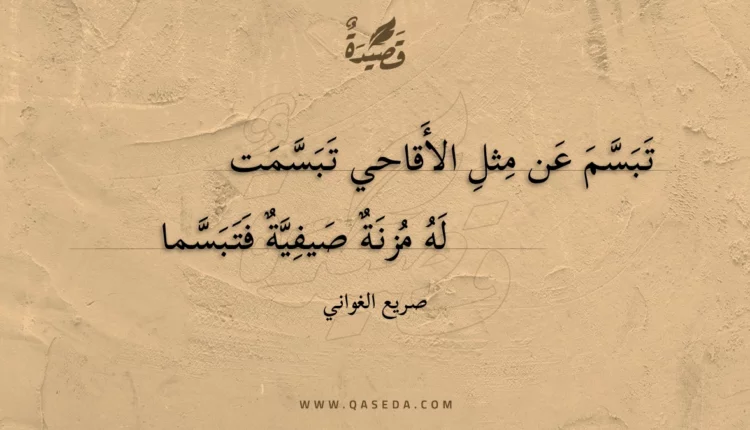 قَصِيدَةٌ
تَبَسَّمَ عَن مِثلِ الأَقاحي تَبَسَّمَت
لَهُ مُزنَةٌ صَيفِيَّةٌ فَتَبَسَّما
صريع الغواني
WWW.QASEDA.COM